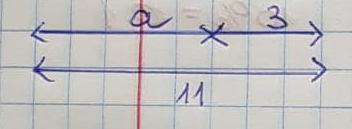 a 3
11